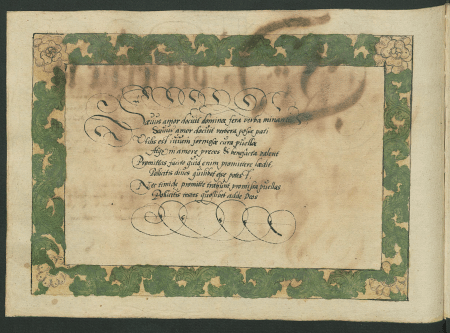 Saeuus amor docuit dominae fera verba minantis
Saeuus amor docuit verbera posse pati
Vtilis est cuiuis formosae cura puellae
Atque in amore preces & benefacta valent
Promittas facito quid enim promittere laedit
Pollicitis diues quilibet esse potest.
Nec timide promitte trahunt promissa puellas
Pollicitis testes quoslibet adde Deos